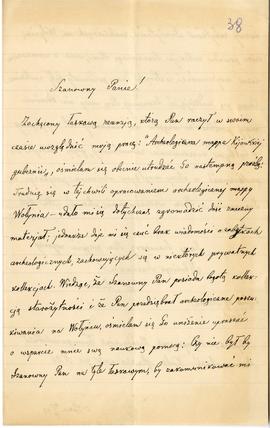 38
Szanowny Panie!
Zachęcony łaskawą recenzją, którą Pan raczył w swoim
czasie uwzględnić moją pracę: "Archeologiczna mappa Kijowskiej
gubernii", ośmielam się obecnie utrudzać Go następną prośbą:
Trudnię się w tej chwili opracowaniem archeologicznej mappy
Wołynia – udało mi się dotychczas zgromadzić dość znaczny
materjał; jednakże daje mi się czuć brak wiadomości o zabytkach
archeologicznych, zachowujących się w niektórych prywatnych
kollekcjach. Wiedząc, że Szanowny Pan posiada bogatą kollek-
cją starożytności i że Pan przedsiębrał archeologiczne poszu-
kiwania na Wołyniu, ośmielam się Go uniżenie upraszać
o wsparcie mnie swą naukową pomocą: Czy nie był by
Szanowny Pan na tyle łaskawym, by zakomunikować mi